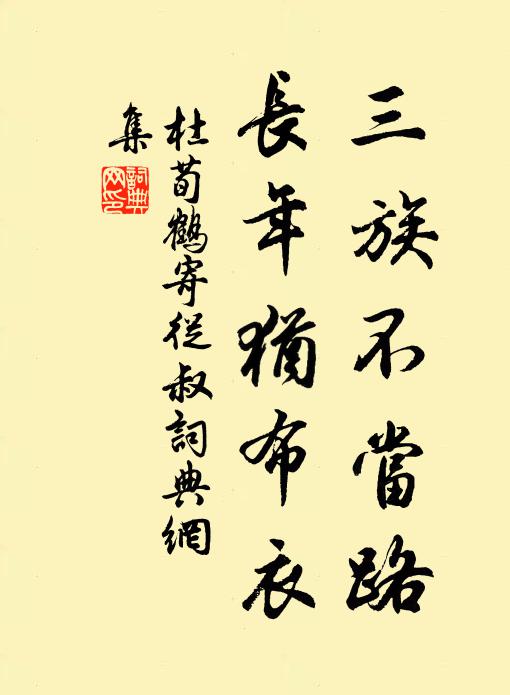 三族不當路
長年猶布衣
杜荀鶴寄從叔詞典網
集
詞典
网印